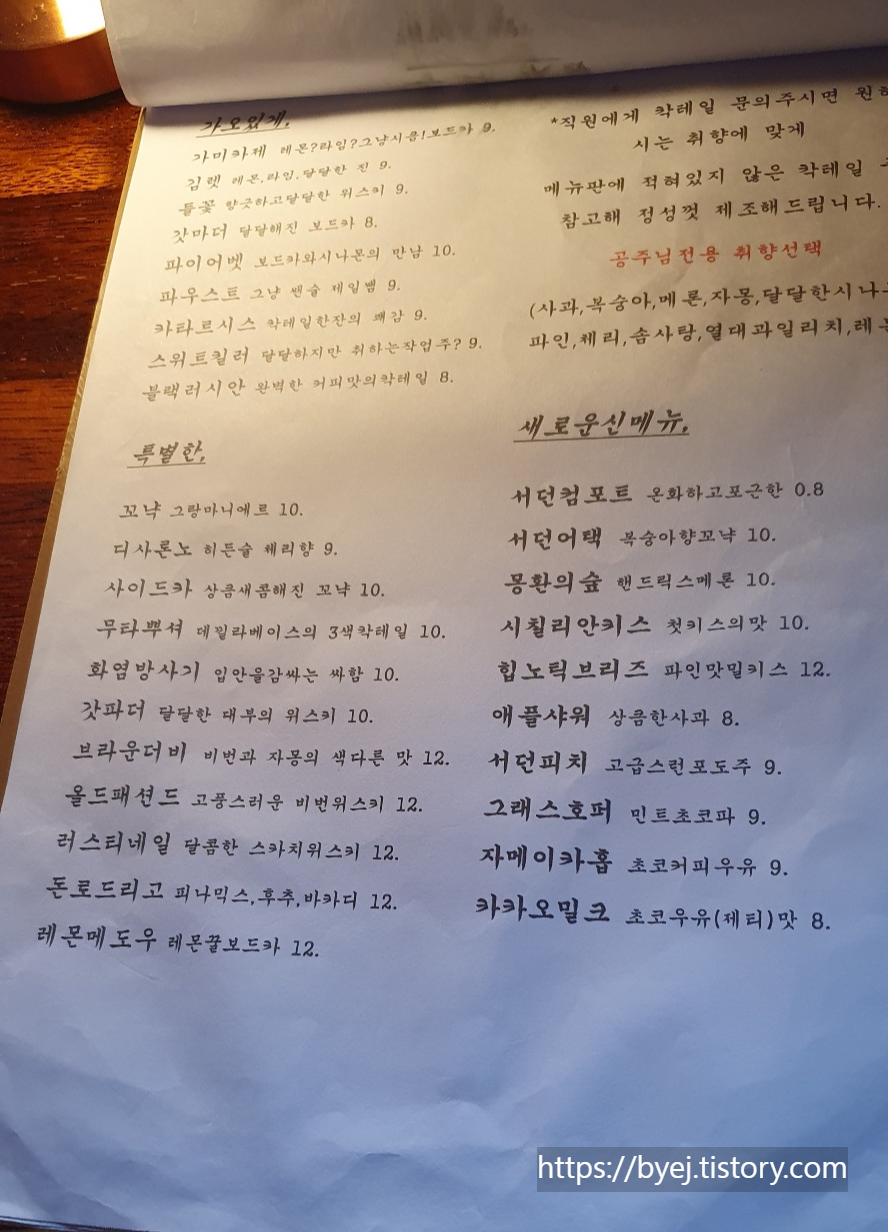 가오있게,
가미카제 레몬?라임?그냥시큼!보드카 9.
김렛 레몬.라임.달달한 진 9.
들꽃 향긋하고달달한 위스키 9.
갓마더 달달해진 보드카 8.
파이어벳 보드카와시나몬의 만남 10.
파우스트 그냥 쌘술 제일쌤 9.
카타르시스 칵테일한잔의 쾌감 9.
스위트킬러 달달하지만 취하는작업주? 9.
블랙러시안 완벽한 커피맛의칵테일 8.
특별한,
꼬냑 그랑마니에르 10.
디사론노 히든술 체리향 9.
사이드카 상큼새콤해진 꼬냑 10.
무타뿌셔 데낄라베이스의 3색칵테일 10.
화염방사기 입안을감싸는 싸함 10.
갓파더 달달한 대부의 위스키 10.
브라운더비 비번과 자몽의 색다른 맛 12.
올드패션드 고풍스러운 비번위스키 12.
러스티네일 달콤한 스카치위스키 12.
돈로드리고 피나믹스,후추,바카디 12.
레몬메도우 레몬꿀보드카 12.
*직원에게 칵테일 문의주시면 원하
시는 취향에 맞게
메뉴판에 적혀있지 않은 칵테일
참고해 정성껏 제조해드립니다.
공주님전용 취향선택
(사과,복숭아,메론,자몽,달달한시나
파인,체리,솜사탕,열대과일리치,레
새로운신메뉴,
서던컴포트 온화하고포근한 0.8
서던어택 복숭아향꼬냑 10.
몽환의숲 핸드릭스메론 10.
시칠리안키스 첫키스의맛 10.
힙노틱브리즈 파인맛밀키스 12.
애플샤워 상큼한사과 8.
서던피치 고급스런포도주 9.
그래스호퍼 민트초코파 9.
자메이카홉 초코커피우유 9.
카카오밀크 초코우유(제티)맛 8.
https://byej.tistory.com